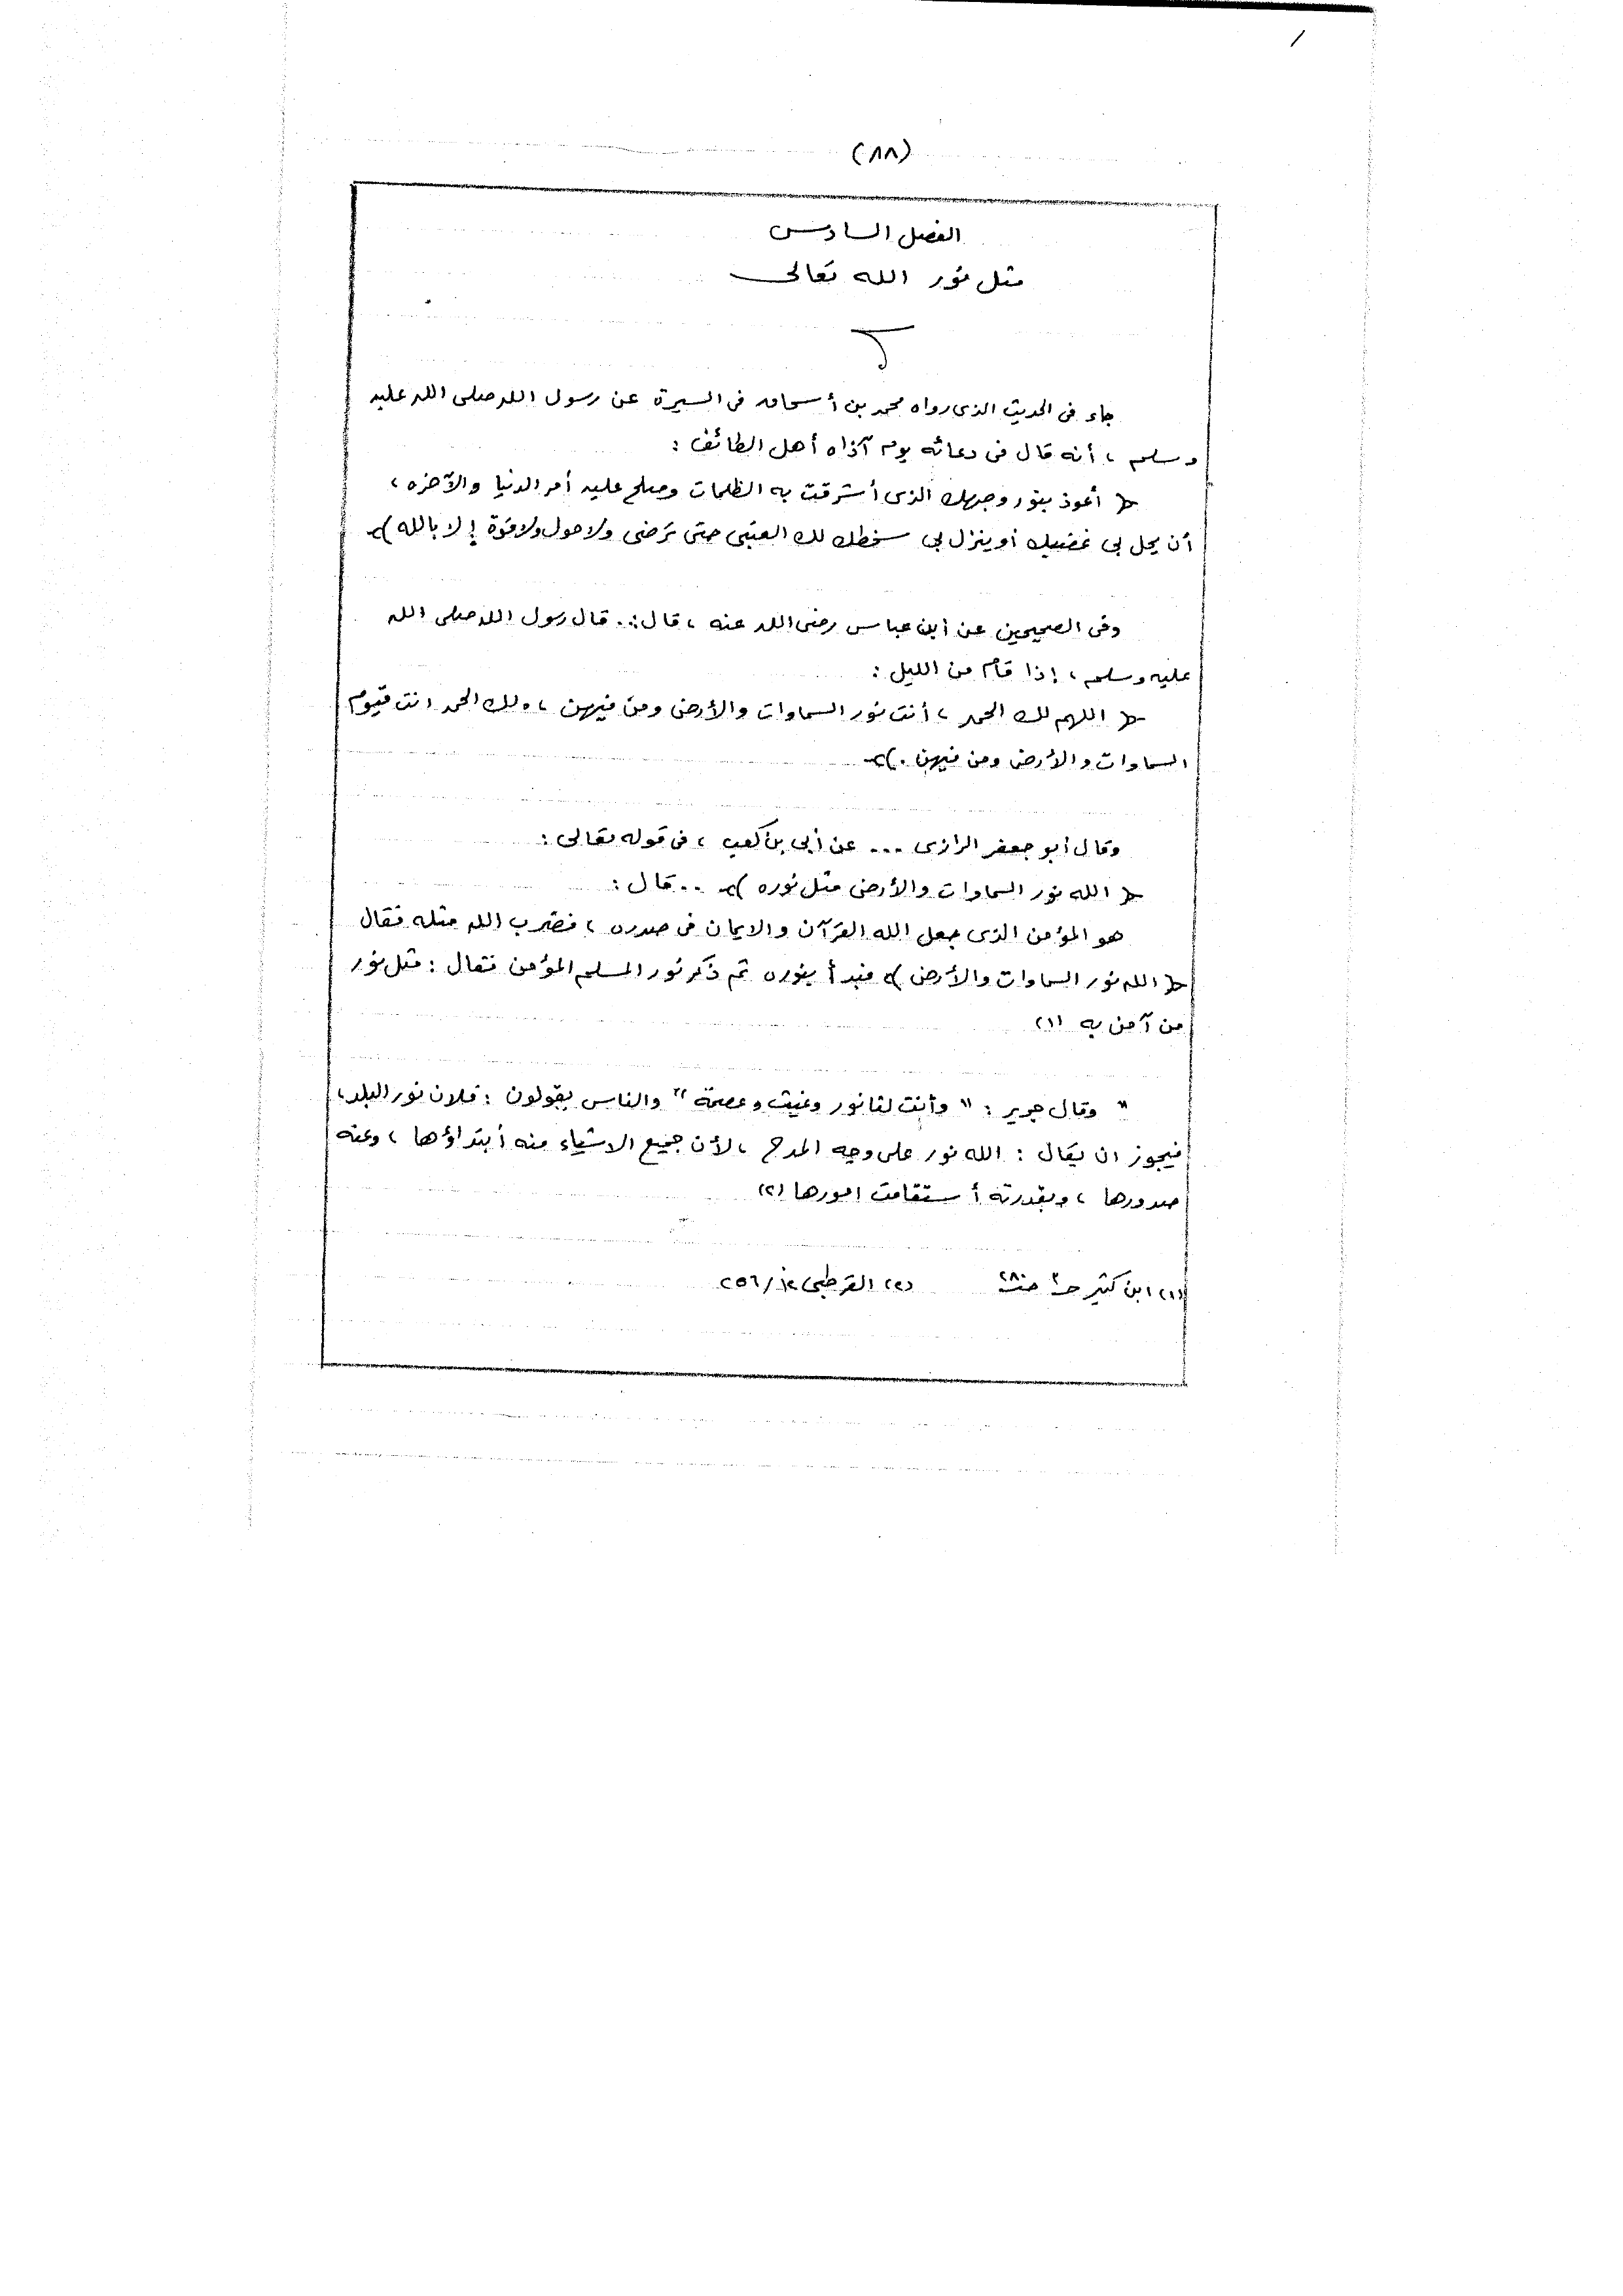 (٨٨)
الفصل السادس
مثل نور الله تعالى
جاء فى الحديث الذى رواه محمد بن أسحاق فى السيرة عن رسول الله صلى الله عليه
وسلم ، أنه قال فى دعائه يوم آذاه أهل الطائف :
﴿ أعوذ بنور وجهك الذى أشرقت به الظلمات وصلح عليه أمر الدنيا والآخره ،
أن يحل بى غضبك أو ينزل بى سخطك لك العتبى حتى ترضى ولا حول ولا قوة إلا بالله ﴾
وفى الصحيحين عن أبن عباس رضى الله عنه ، قال : .. قال رسول الله صلى الله
عليه وسلم ، إذا قام من الليل :
﴿ اللهم لك الحمد ، أنت نور السماوات والأرض ومن فيهن ، ولك الحمد انت قيوم
السماوات والأرض ومن فيهن . ﴾
وقال أبو جعفر الرازى ... عن أبى بن كعب ، فى قوله تعالى :
﴿ الله نور السماوات والأرض مثل نوره ﴾ .. قال :
هو المؤمن الذى جعل الله القرآن والايمان فى صدره ، فضرب الله مثله فقال
﴿ الله نور السماوات والأرض ﴾ فبدأ بنوره ثم ذكر نور المسلم المؤمن فقال : مثل نور
من آمن به (١)
" وقال جرير : " وأنت لنا نور وغيث وعصمة " والناس يقولون : فلان نور البلد ،
فيجوز ان يقال : الله نور على وجه المدح ، لأن جميع الاشياء منه أبتداؤها ، وعنه
صدورها ، وبقدرته أستقامت امورها (٢)
(١) ابن كثير حـ٣ صـ٢٨٠ (٢) القرطبى ١٢/٢٥٦